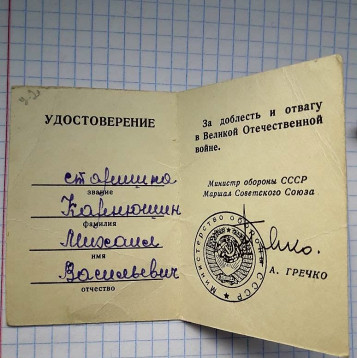 УДОСТОВЕРЕНИЕ
старшина
звание
Карлюшин
фамилия
Михаил
имя
Васильевич
отчество
За доблесть и отвагу
в Великой Отечественной
войне.
Министр обороны СССР
Маршал Советского Союза
Министерство обороны СССР
А. ГРЕЧКО